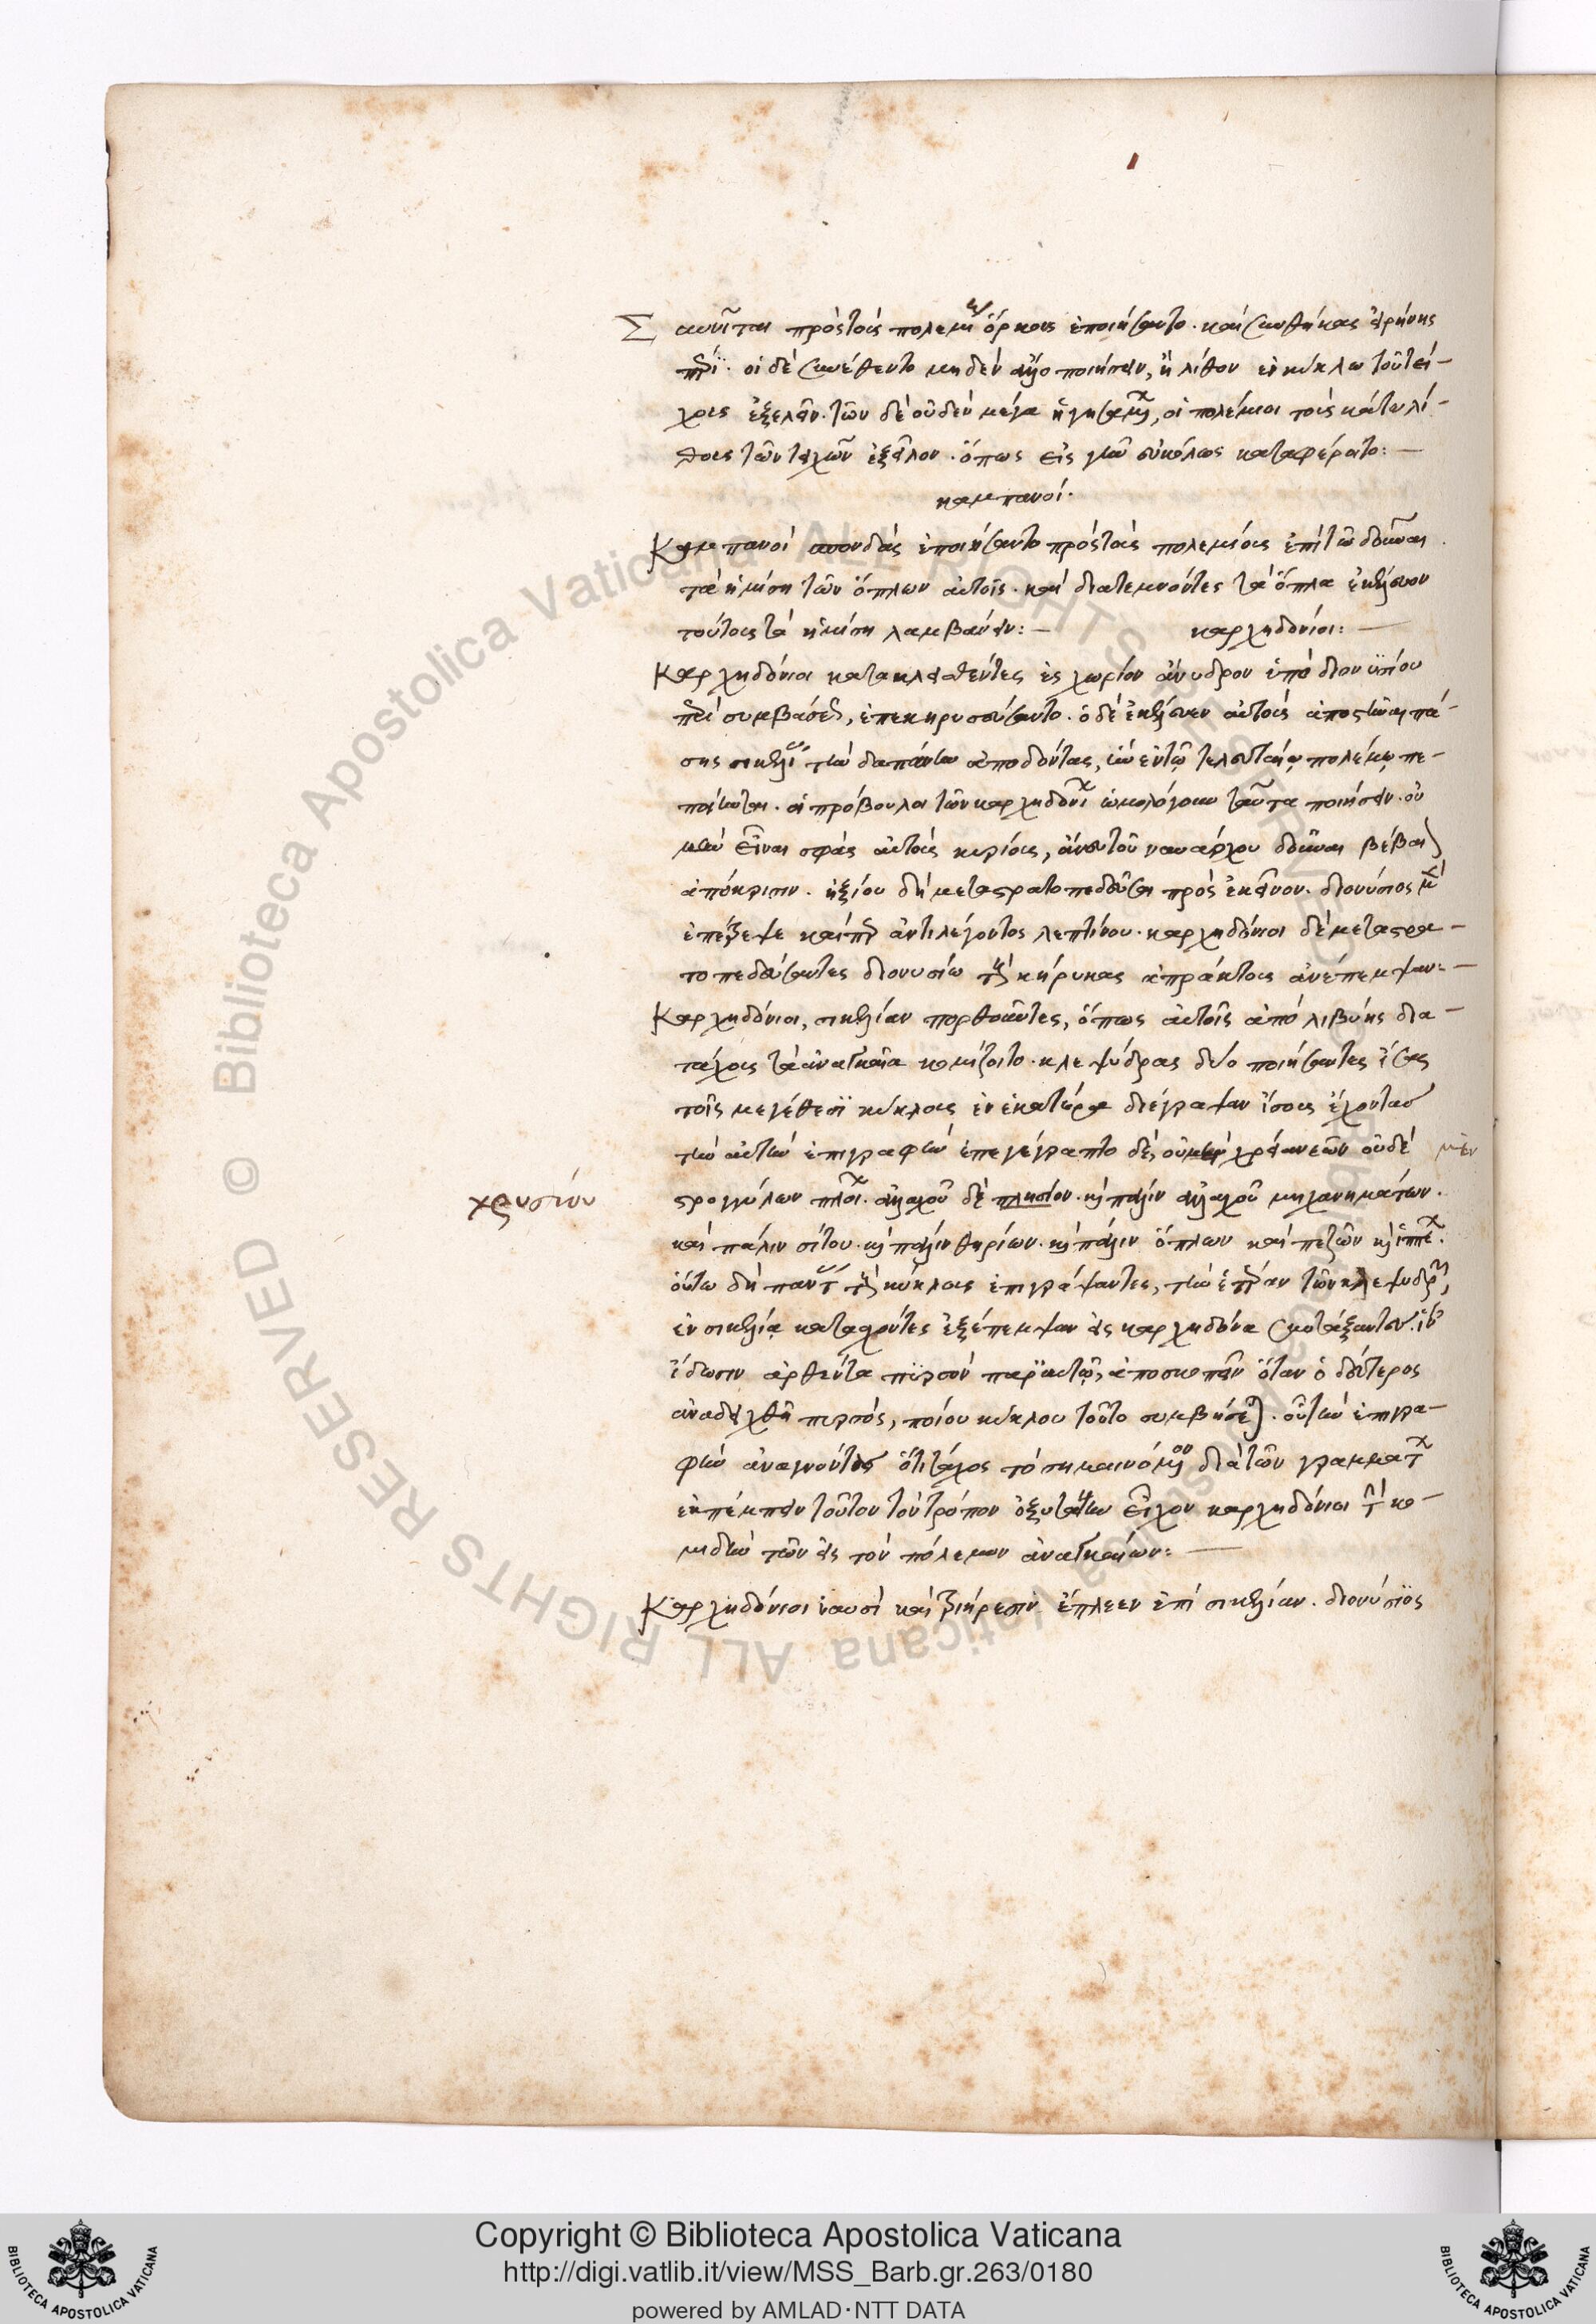 Σαυνῖται πρὸς τοὺς πολεμί ὅρκους ἐποιήσαντο. καὶ συνθήκας εἰρήνης
περὶ. οἱ δὲ συνέθεντο μηδὲν ἄλλο ποιήσειν, ἢ λίθον ἐν κύκλω τοῦ τεί-
χους ἐξελεῖν. τῶν δὲ οὐδὲν μέγα ἡγησαμ, οἱ πολέμιοι τοὺς κάτω λί-
θους τῶν τειχῶν ἐξεῖλον. ὅπως εἰς γῆν εὐκόλως καταφέροιτο:—
καμπανοί.
Καμπανοὶ σπονδὰς ἐποιήσαντο πρὸς τοὺς πολεμίους ἐπὶ τῶ δοῦναι
τὰ ἡμίση τῶν ὅπλων αὐτοῖς. καὶ διατεμνόντες τὰ ὅπλα ἐκέλευον
τούτους τὰ ἡμίση λαμβάνειν:— καρχηδόνιοι:—
Καρχηδόνιοι κατακλεισθέντες ἐς χωρίον ἄνυδρον ὑπὸ διονυσίου
περὶ συμβάσεως, ἐπεκηρυκεύσαντο. ὁ δὲ ἐκέλευεν αὐτοὺς ἀποστῆναι πά-
σης σικελί τὴν δαπάνην ἀποδόντας, ἣν ἐν τῷ τελευταίῳ πολέμῳ πε-
ποίηται. οἱ πρόβουλοι τῶν καρχηδονί ὡμολόγουν ταῦτα ποιήσειν. οὐ
μὴν εἶναι σφᾶς αὐτοὺς κυρίους, ἄνευ τοῦ ναυάρχου δοῦναι βέβαι
ἀπόκρισιν. ἠξίου δὴ μεταστρατοπεδεῦσαι πρὸς ἐκεῖνον. διονύσιος μ
ἐπέτρεψε καίπερ ἀντιλέγοντος λεπτίνου. καρχηδόνιοι δὲ μεταστρα-
τοπεδεύσαντες διονυσίω τοὺς κήρυκας ἀπράκτους ἀνέπεμψαν:—
Καρχηδόνιοι, σικελίαν πορθοῦντες, ὅπως αὐτοῖς ἀπὸ λιβύης διὰ
τάχους τὰ ἀναγκαῖα κομίζοιτο. κλεψύδρας δύο ποιήσαντες ἴσας
τοῖς μεγέθεσϊ κύκλους ἐν ἑκατέρα διέγραψαν ἴσους ἔχοντας
τὴν αὐτὴν ἐπιγραφήν ἐπεγέγραπτο δὲ, οὗ χρεία νεῶν οὗ δὲ μὲν
χρυσίου στρογγύλων πλοί. ἀλλαχοῦ δὲ πλησίον. καὶ πάλιν ἀλλαχοῦ μηχανημάτων.
καὶ πάλιν σίτου. καὶ πάλιν θηρίων. καὶ πάλιν ὅπλων καὶ πεζῶν καὶ ἱππέ.
οὕτω δὴ παντ τοὺς κύκλους ἐπιγράψαντες, τὴν ἑτέραν τῶν κλεψυδρ,
ἐν σικελίᾳ κατασχόντες ἐξέπεμψαν εἰς καρχηδόνα
ἴδωσιν ἀρθέντα πυρσὸν παρ' αὐτῷ, ἀποσκοπεῖν ὅταν ὁ δεύτερος
ἀναδειχθῆ πυρσός, ποίου κύκλου τοῦτο συμβήσε. οὗ τὴν ἐπιγρα-
φὴν ἀναγνόντες ὅτι τάχος τὸ σημαινόμον διὰ τῶν γραμματ
ἐκπέμπειν τοῦτον τὸν τρόπον ὀξυτάτην εἶχον καρχηδόνιοι τ κο-
μιδὴν τῶν εἰς τὸν πόλεμον ἀναγκαίων:—
Καρχηδόνιοι ναυσὶ καὶ τριήρεσιν ἔπλεεν ἐπὶ σικελίαν. διονύσιος
Copyright © Biblioteca Apostolica Vaticana
http://digi.vatlib.it/view/MSS_Barb.gr.263/0180
powered by AMLAD·NTT DATA
BIBLIOTECA APOSTOLICA VATICANA
BIBLIOTECA APOSTOLICA VATICANA
© Biblioteca Apostolica Vaticana ALL RIGHTS RESERVED